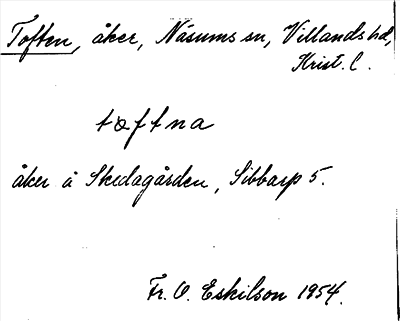 Toften, åker, Näsums sn, Villands hd,
Krist. l.
tæftna
åker å Skedagården, Sibbarp 5.
Fr. O. Eskilson 1954.